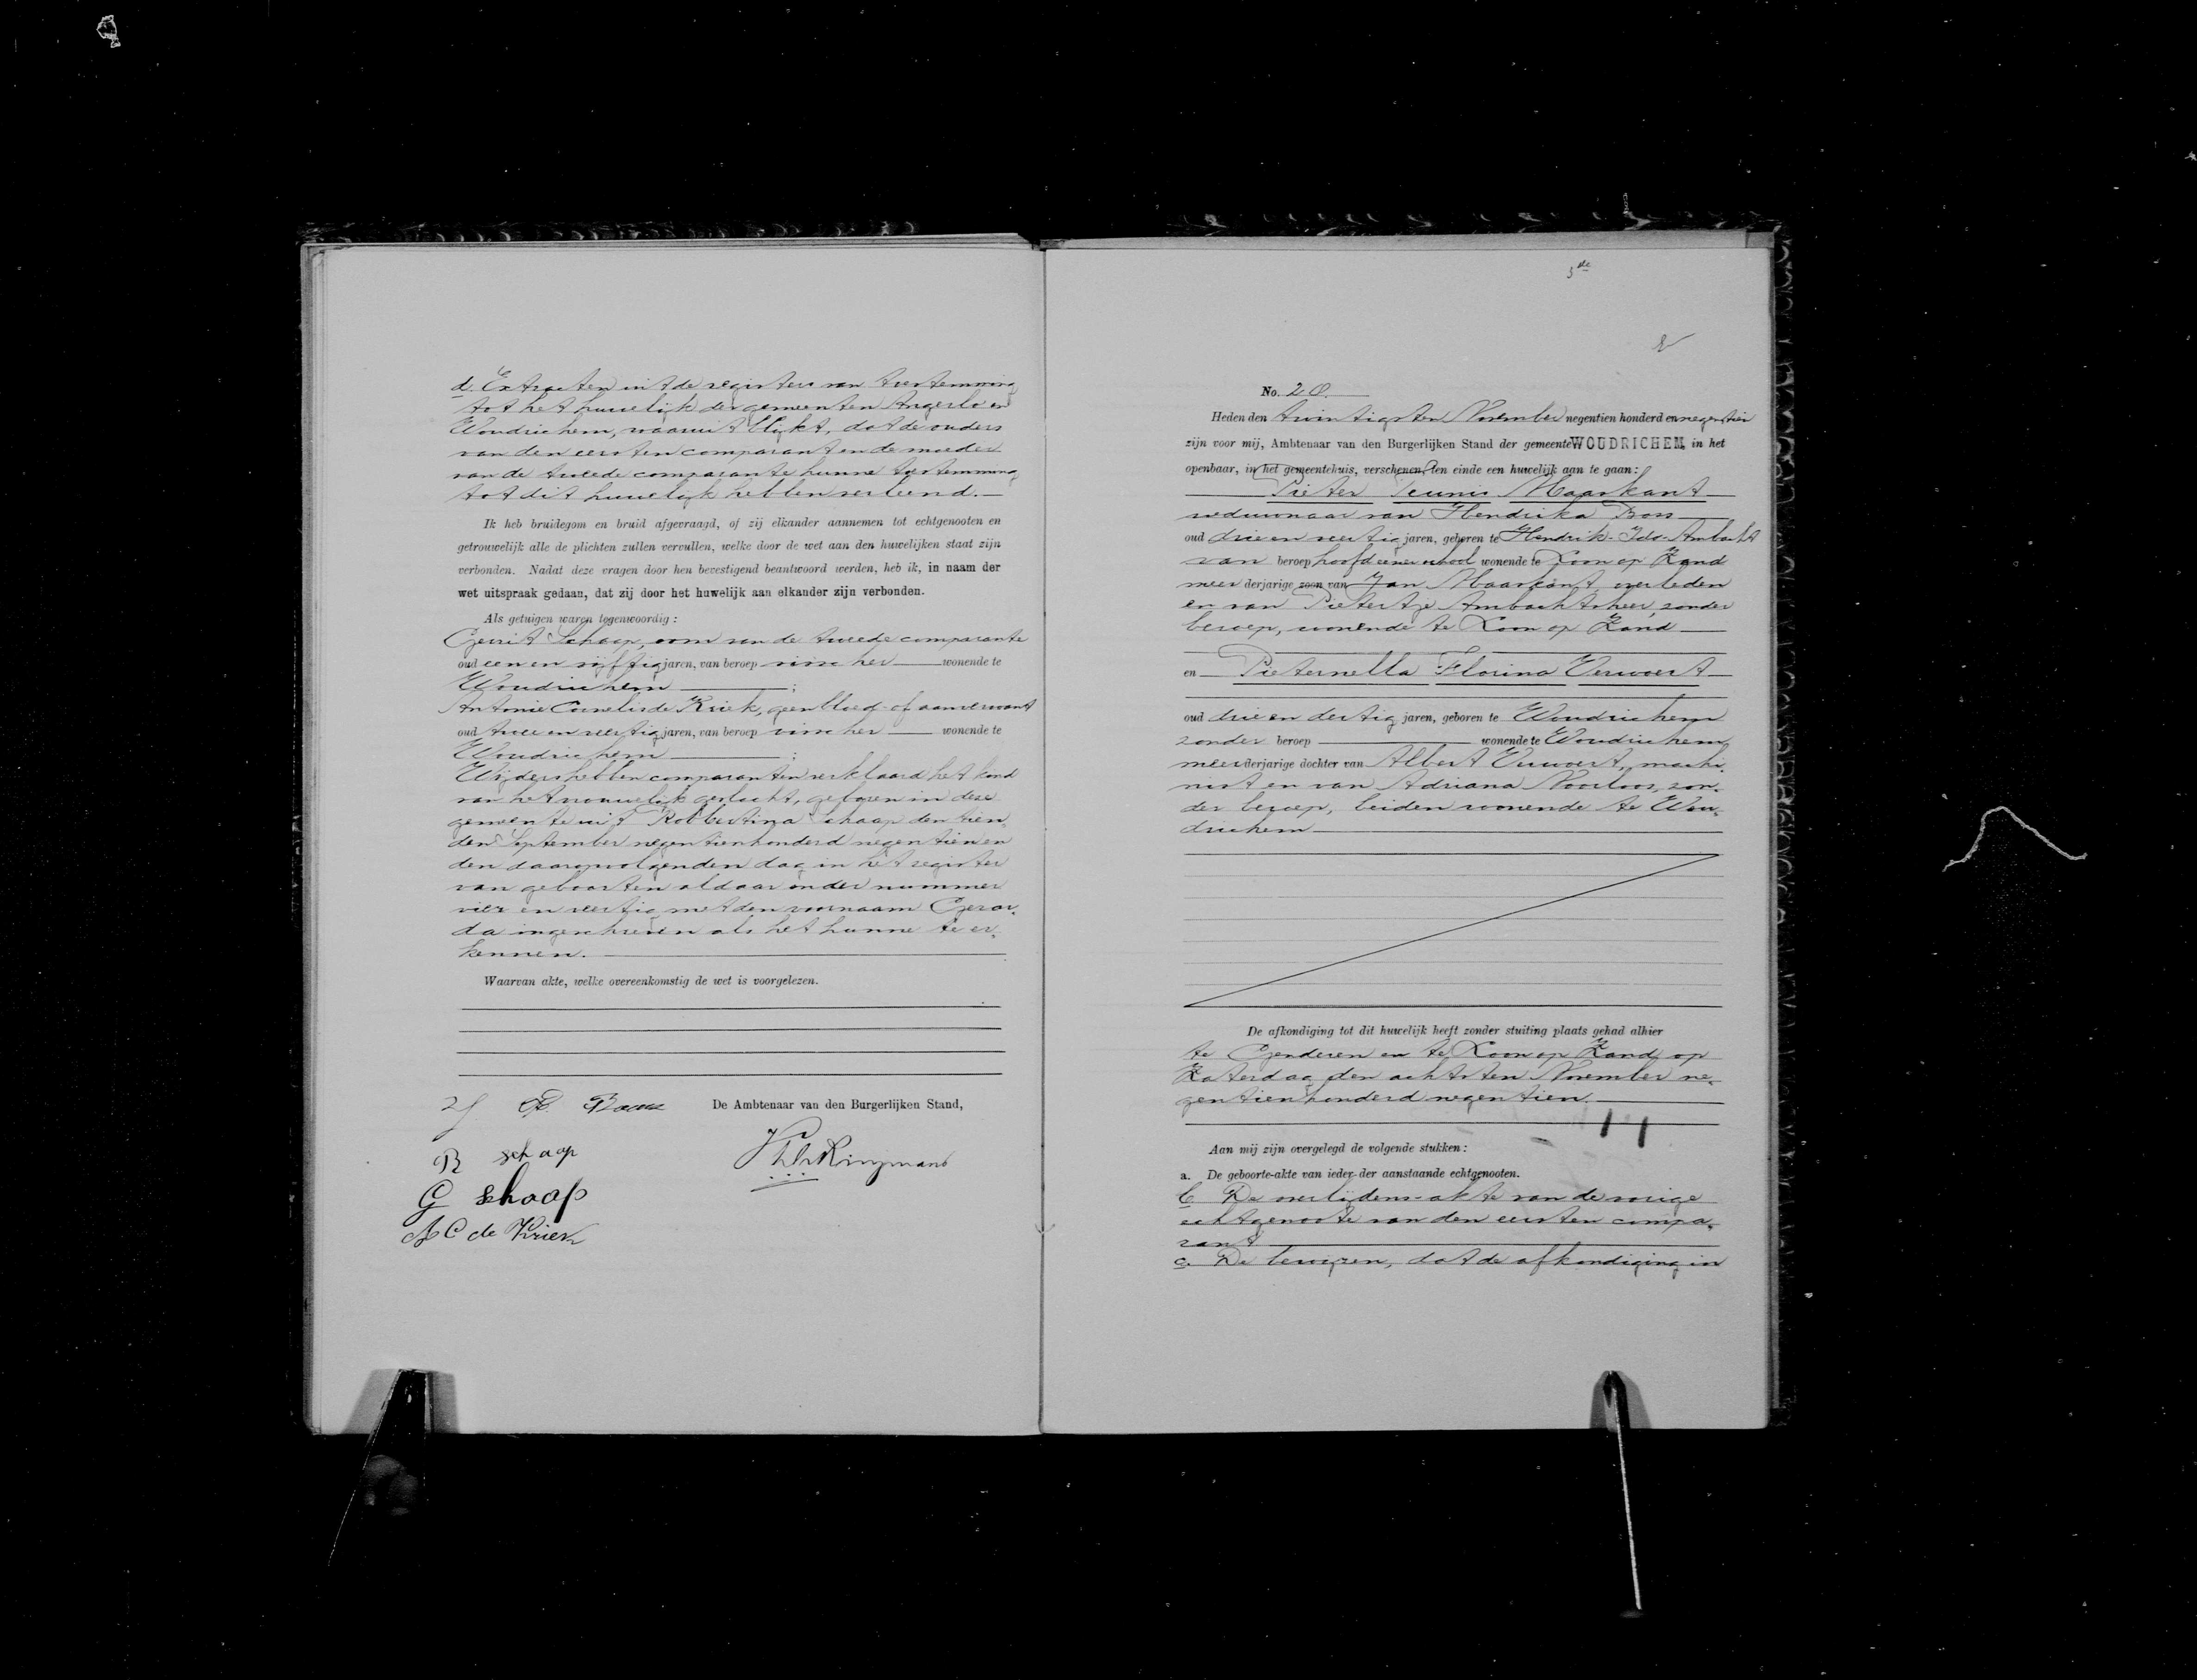 d. Extracten uit de registers van toestemming
tot het huwelijk der gemeenten Angerlo en
Woudrichem, waaruit blijkt, dat de ouders
van den eersten comparant en de moeder
van de tweede comparante hunne toestemming
tot dit huwelijk hebben verleend.
Ik heb bruidegom en bruid afgevraagd, of zij elkander aannemen tot echtgenooten en
getrouwelijk alle de plichten zullen vervullen, welke door de wet aan den huwelijken staat zijn
verbonden. Nadat deze vragen door hen bevestigend beantwoord werden, heb ik, in naam der
wet uitspraak gedaan, dat zij door het huwelijk aan elkander zijn verbonden.
Als getuigen waren tegenwoordig:
Gerrit Schaap, oom van de tweede comparante
oud een en vijftig jaren, van beroep visscher wonende te
Woudrichem ;
Antonie Cornelis de Kriek, geen bloed- of aanverwant
oud twee en veertig jaren, van beroep visscher wonende te
Woudrichem ;
Wijders hebben comparanten verklaard het kind
van het vrouwelijk geslacht, geboren in deze
gemeente uit Robbertina Schaap den tien-
den September negentienhonderd negentien en
den daaropvolgenden dag in het register
van geboorten aldaar onder nummer
vier en veertig met den voornaam Gerar-
da ingeschreven als het hunne te er-
kennen.
Waarvan akte, welke overeenkomstig de wet is voorgelezen.
De Ambtenaar van den Burgerlijken Stand,
R schaap
G schaap
A C de Kriek
5de
No. 20.
Heden den twintigsten November negentien honderd en negentien
zijn voor mij, Ambtenaar van den Burgerlijken Stand der gemeente WOUDRICHEM, in het
openbaar, in het gemeentehuis, verschenen, ten einde een huwelijk aan te gaan:
Pieter Teunis Maarkant
weduwnaar van Hendrika Bos
oud drie en veertig jaren, geboren te Hendrik-Ido-Ambacht
van beroep hoofd eener school wonende te Loon op Zand
meerderjarige zoon van Jan Maarkant, overleden
en van Pietertje Ambachtsheer, zonder
beroep, wonende te Loon op Zand
en Pieternella Florina Verwoert
oud drie en dertig jaren, geboren te Woudrichem
zonder beroep wonende te Woudrichem
meerderjarige dochter van Albert Verwoert, machi-
nist en van Adriana Noorloos, zon-
der beroep, beiden wonende te Wou-
drichem
De afkondiging tot dit huwelijk heeft zonder stuiting plaats gehad alhier
te Genderen en te Loon op Zand op
Zaterdag den achtsten November ne-
gentienhonderd negentien.
Aan mij zijn overgelegd de volgende stukken:
a. De geboorte-akte van ieder der aanstaande echtgenooten.
b. De overlijdens-akte van de vorige
echtgenoote van den eersten compa-
rant
c. De bewijzen, dat de afkondiging in